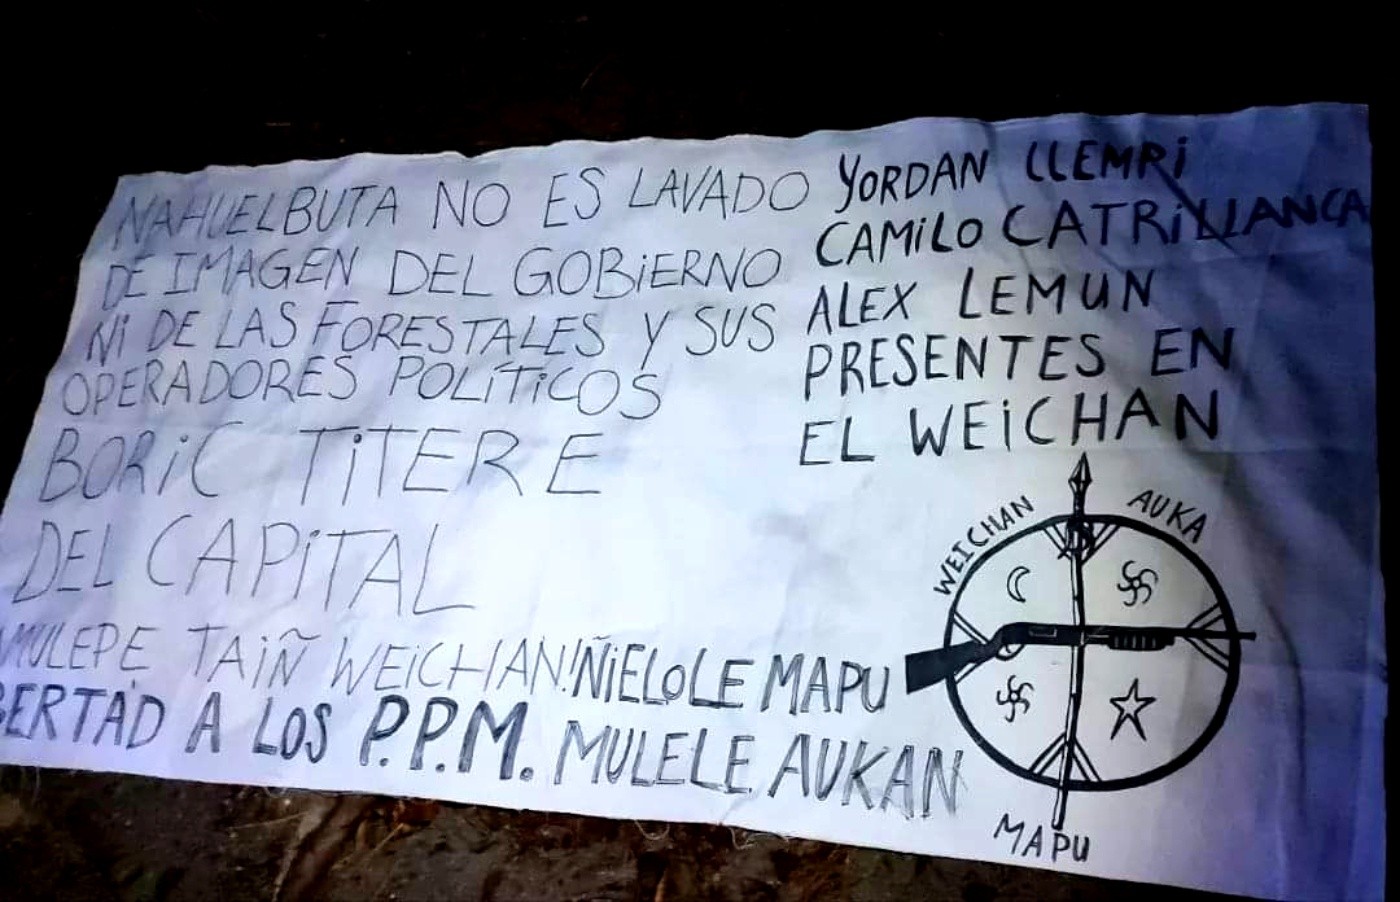 NAHUELBUTA NO ES LAVADO
DE IMAGEN DEL GOBIERNO
Ni DE LAS FORESTALES Y SUS
OPERADORES POLÍTICOS
BORIC TITERE
DEL CAPITAL
AMULEPE TAIÑ WEICHAN!
BERTAD A LOS P.P.M.
YORDAN LLEMPI
CAMILO CATRILLANCA
ALEX LEMUN
PRESENTES EN
EL WEICHAN
WEICHAN AUKA
MAPU
ÑIELOLE MAPU
MULELE AUKAN